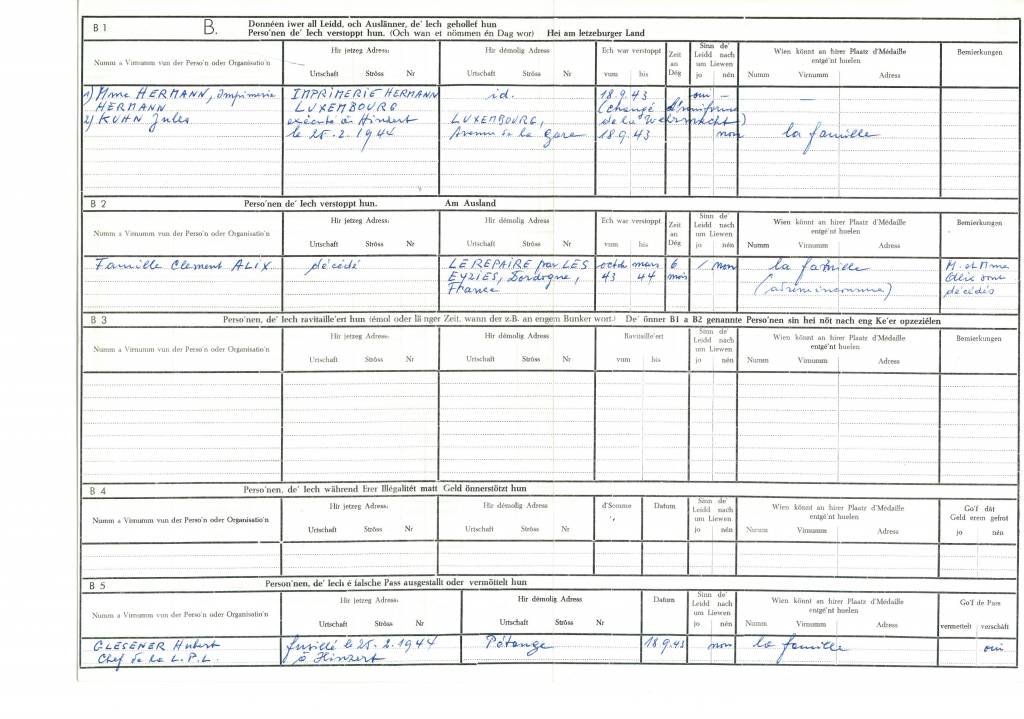 B 1
B.
Donnéen iwer all Leidd, och Auslänner, de' Iech gehollef hun
Perso'nen de' Iech verstoppt hun. (Och wan et nömmen én Dag wor) Hei am letzeburger Land
Numm a Virnumm vun der Perso'n oder Organisatio'n
Hir jetzeg Adress:
Urtschaft Ströss Nr
Hir démolig Adress
Urtschaft Ströss Nr
Ech war verstoppt
vum bis
Zeit an Dég
Sinn de' Leidd nach um Liewen
jo nén
Wien könnt an hirer Plaatz d'Médaille entgé'nt huelen
Numm Virnumm Adress
Bemierkungen
1) Mme HERMANN, Imprimerie IMPRIMERIE HERMANN id. 18.9.43 oui —
HERMANN LUXEMBOURG (changé d'uniforme
2) KUHN Jules exécuté à Hinzert LUXEMBOURG, de la Wehrmacht)
le 25.2.1944 Avenue de la Gare 18.9.43 non la famille
B 2
Perso'nen de' Iech verstoppt hun. Am Ausland
Numm a Virnumm vun der Perso'n oder Organisatio'n
Hir jetzeg Adress:
Urtschaft Ströss Nr
Hir démolig Adress
Urtschaft Ströss Nr
Ech war verstoppt
vum bis
Zeit an Dég
Sinn de' Leidd nach um Liewen
jo nén
Wien könnt an hirer Plaatz d'Médaille entgé'nt huelen
Numm Virnumm Adress
Bemierkungen
Famille Clement ALIX décédé LE REPAIRE par LES octob mars 6 / non la famille M. et Mme
EYZIES, Dordogne, 43 44 mois Alix sont
France décédés
B 3
Perso'nen, de' Iech ravitaille'ert hun (émol oder länger Zeit, wann der z.B. an engem Bunker wort.) De' önner B1 a B2 genannte Perso'nen sin hei nöt nach eng Ke'er opzeziélen
Numm a Virnumm vun der Perso'n oder Organisatio'n
Hir jetzeg Adress:
Urtschaft Ströss Nr
Hir démolig Adress
Urtschaft Ströss Nr
Ravitaille'ert
vum bis
Sinn de' Leidd nach um Liewen
jo nén
Wien könnt an hirer Plaatz d'Médaille entgé'nt huelen
Numm Virnumm Adress
Bemierkungen
B 4
Perso'nen, de' Iech während Erer Illégalitét matt Geld önnerstötzt hun
Numm a Virnumm vun der Perso'n oder Organisatio'n
Hir jetzeg Adress:
Urtschaft Ströss Nr
Hir démolig Adress
Urtschaft Ströss Nr
d'Somme
Datum
Sinn de' Leidd nach um Liewen
jo nén
Wien könnt an hirer Plaatz d'Médaille entgé'nt huelen
Numm Virnumm Adress
Go'f dât Geld erem gefrot
jo nén
B 5
Person'nen, de' Iech é falsche Pass ausgestallt oder vermöttelt hun
Numm a Virnumm vun der Perso'n oder Organisatio'n
Hir jetzeg Adress:
Urtschaft Ströss Nr
Hir démolig Adress
Urtschaft Ströss Nr
Datum
Sinn de' Leidd nach um Liewen
jo nén
Wien könnt an hirer Plaatz d'Médaille entgé'nt huelen
Numm Virnumm Adress
Go'f de Pass
vermettelt verschâft
GLESENER Hubert fusillé le 25.2.1944 Pétange 18.9.43 non la famille oui
Chef de la L.P.L. à Hinzert